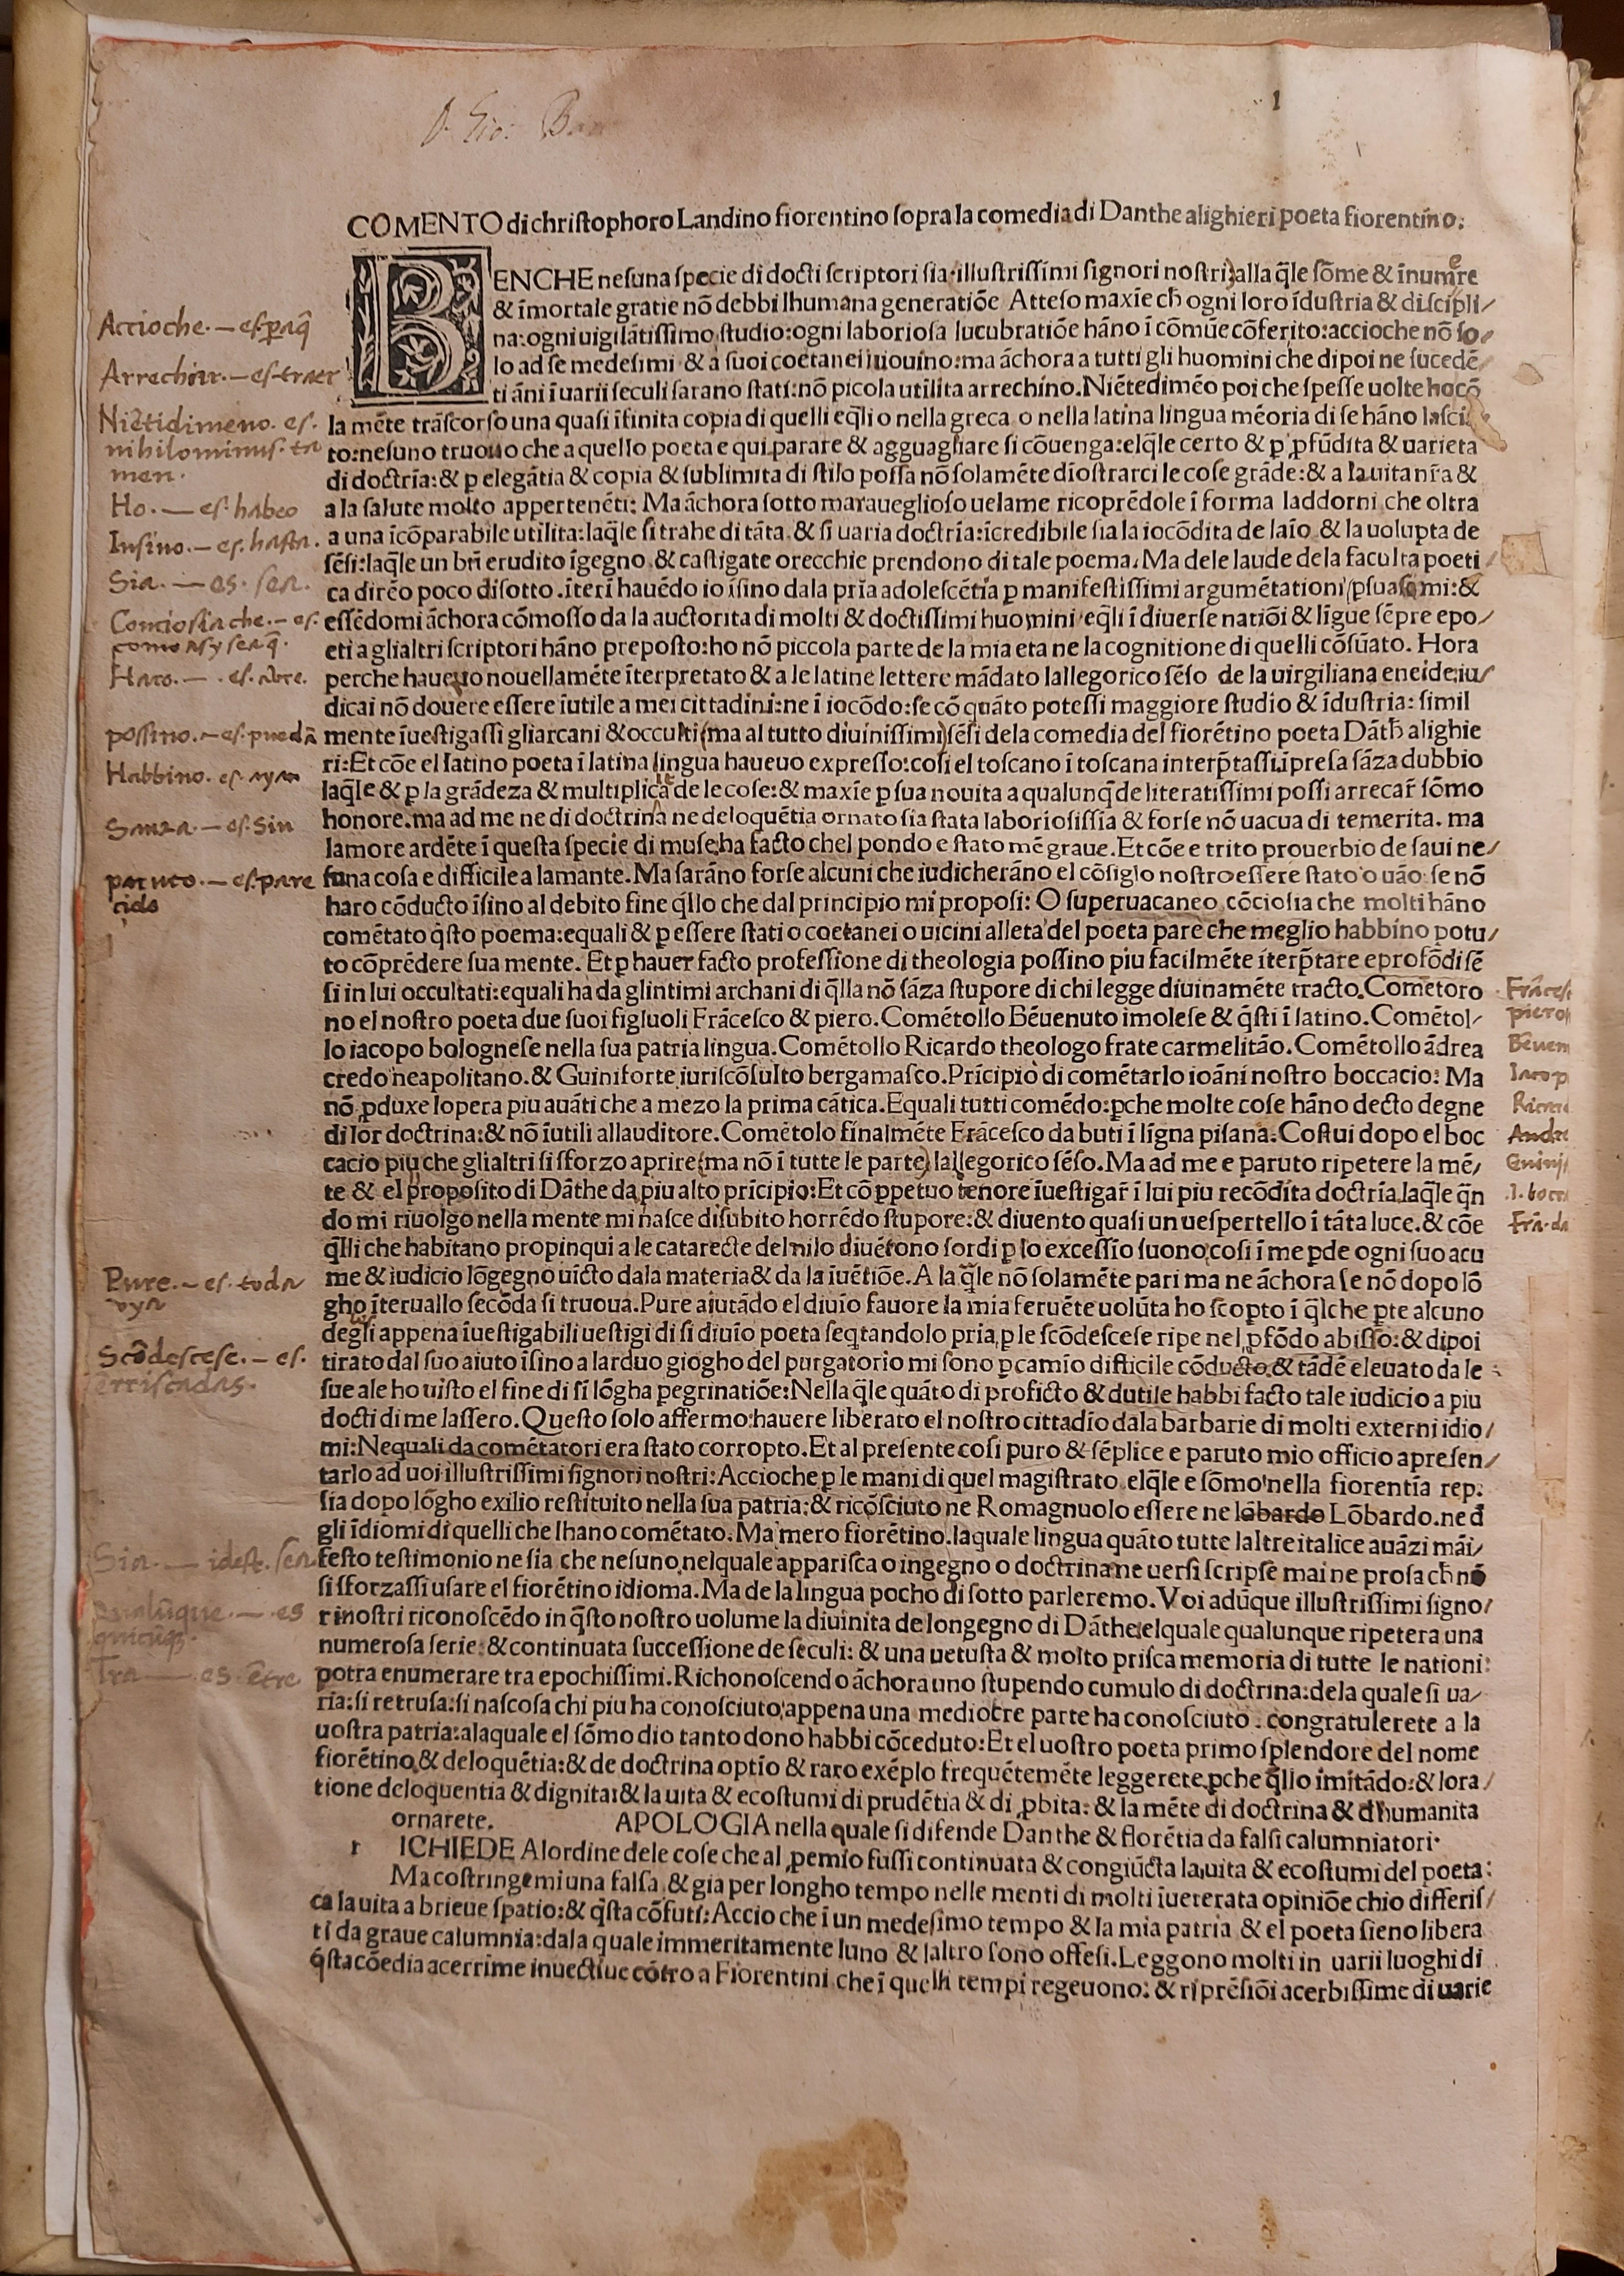 D. Gio: Ba
1
COMENTO di chriſtophoro Landino fiorentino ſopra la comedia di Danthe alighieri poeta fiorentino.
BENCHE neſuna ſpecie di docti ſcriptori ſia·illuſtriſſimi ſignori noſtri)alla q̄le ſōme & īnumere
& īmortale gratie nō debbi lhumana generatiōe Atteſo maxīe cħ ogni loro īduſtria & diſcipli/
na:ogni uigilātiſſimo ſtudio:ogni laborioſa lucubratiōe hāno ī cōmūe cōferito:accioche nō ſo/
lo ad ſe medeſimi & a ſuoi coetanei iuouino:ma āchora a tutti gli huomini che dipoi ne ſucedē
ti āni ī uarii ſeculi ſarano ſtati:nō picola utilita arrechino.Niētedimēo poi che ſpeſſe uolte ho cō
la mēte trāſcorſo una quaſi īfinita copia di quelli eq̄li o nella greca o nella latina lingua mēoria di ſe hāno laſcia
to:neſuno truouo che a queſto poeta e qui parare & agguagliare ſi cōuenga:elq̄le certo & ꝑ ꝓfūdita & uarieta
di doctria:& ꝑ elegātia & copia & ſublimita di ſtilo poſſa nō ſolamēte dīoſtrarci le coſe grāde:& a la uita nr̄a &
a la ſalute molto appertenēti: Ma āchora ſotto marauegliofo uelame ricoprēdole ī forma laddorni che oltra
a una īcōparabile utilita:laq̄le ſi trahe di tāta & ſi uaria doctria:īcredibile ſia la iocōdita de laīo & la uolupta de
ſēſi:laq̄le un bñ erudito īgegno & caſtigate orecchie prendono di tale poema. Ma dele laude dela faculta poeti
ca dirēo poco diſotto .īteri hauēdo io īſino dala pria adoleſcētia ꝑ manifeſtiſſimi argumētationi ꝑſuaſomi:&
eſſēdomi āchora cōmoſſo da la auctorita di molti & doctiſſimi huomini eq̄li ī diuerſe natiōi & līgue ſēpre epo/
eti a glialtri ſcriptori hāno prepoſto:ho nō piccola parte de la mia eta ne la cognitione di quelli cōſūato. Hora
perche haueuo nouellamēte īterpretato & a le latine lettere mādato lallegorico ſēſo de la uirgiliana eneide:iu/
dicai nō douere eſſere īutile a mei cittadini:ne ī iocōdo:ſe cō quāto poteſſi maggiore ſtudio & īduſtria: ſimil
mente īueſtigaſſi gliarcani & occulti(ma al tutto diuiniſſimi)ſēſi dela comedia del fiorētino poeta Dātħ alighie
ri:Et cōe el latino poeta ī latina lingua haueuo expreſſo:coſi el toſcano ī toſcana interp̄taſſi.īpreſa ſāza dubbio
laq̄le & ꝑ la grādeza & multiplicita de le coſe:& maxīe ꝑ ſua nouita a qualunq̄ de literatiſſimi poſſi arrecar̄ ſōmo
honore.ma ad me ne di doctrina ne deloquētia ornato ſia ſtata laborioſiſſia & forſe nō uacua di temerita. ma
lamore ardēte ī queſta ſpecie di muſe,ha facto chel pondo e ſtato mē graue.Et cōe e trito prouerbio de ſaui ne/
ſuna coſa e difficile a lamante.Ma ſarāno forſe alcuni che iudicherāno el cōſiglo noſtro eſſere ſtato o uāo ſe nō
haro cōducto īſino al debito fine q̄llo che dal principio mi propoſi: O ſuperuacaneo cōcioſia che molti hāno
comētato q̄ſto poema:equali & ꝑ eſſere ſtati o coetanei o uicini alleta del poeta pare che meglio habbino potu/
to cōprēdere ſua mente. Et ꝑ hauer facto profeſſione di theologia poſſino piu facilmēte īterp̄tare e profōdi ſē
ſi in lui occultati:equali ha da glintimi archani di q̄lla nō ſāza ſtupore di chi legge diuinamēte tracto.Comētoro
no el noſtro poeta due ſuoi figluoli Frāceſco & piero.Comētollo Bēuenuto imoleſe & q̄ſti ī latino.Comētol/
lo iacopo bologneſe nella ſua patria lingua.Comētollo Ricardo theologo frate carmelitāo.Comētollo ādrea
credo neapolitano.& Guiniforte iuriſcōſulto bergamaſco.Prīcipio di comētarlo ioāni noſtro boccacio: Ma
nō ꝓduxe lopera piu auāti che a mezo la prima cātica.Equali tutti comēdo:ꝑche molte coſe hāno decto degne
di lor doctrina:& nō īutili allauditore.Comētolo finalmēte Frāceſco da buti ī līgna piſana.Coſtui dopo el boc
cacio piu che glialtri ſi ſforzo aprire(ma nō ī tutte le parte) lallegorico ſēſo.Ma ad me e paruto ripetere la mē/
te & el propoſito di Dāthe da piu alto prīcipio:Et cō ꝑpetuo tenore īueſtigar̄ ī lui piu recōdita doctria.laq̄le qn̄
do mi riuolgo nella mente mi naſce diſubito horrēdo ſtupore:& diuento quaſi un ueſpertello ī tāta luce.& cōe
q̄lli che habitano propinqui a le catarecte del nilo diuētono ſordi ꝑ lo exceſſio ſuono,coſi ī me ꝑde ogni ſuo acu
me & iudicio lōgegno uīcto dala materia & da la īuētiōe.A la q̄le nō ſolamēte pari ma ne āchora ſe nō dopo lō
gho īteruallo ſecōda ſi truoua.Pure aiutādo el diuīo fauore la mia feruēte uolūta ho ſcopto ī q̄lche ꝑte alcuno
degli appena īueſtigabili ueſtigi di ſi diuīo poeta ſeq̄tandolo pria,ꝑ le ſcōdeſceſe ripe nel ꝓfōdo abiſſo:& dipoi
tirato dal ſuo aiuto īſino a larduo giogho del purgatorio mi ſono ꝑ camīo difficile cōducto.& tādē eleuato da le
ſue ale ho uiſto el fine di ſi lōgha pegrinatiōe:Nella q̄le quāto di proficto & dutile habbi facto tale iudicio a piu
docti di me laſſero.Queſto ſolo affermo:hauere liberato el noſtro cittadīo dala barbarie di molti externi idio/
mi:Nequali da comētatori era ſtato corropto.Et al preſente coſi puro & ſēplice e paruto mio officio apreſen/
tarlo ad uoi illuſtriſſimi ſignori noſtri:Accioche ꝑ le mani di quel magiſtrato elq̄le e ſōmo nella fiorentia rep.
ſia dopo lōgho exilio reſtituito nella ſua patria:& ricōſciuto ne Romagnuolo eſſere ne lōbardo Lōbardo.ne đ
gli īdiomi di quelli che lhano comētato.Ma mero fiorētino.laquale lingua quāto tutte laltre italice auāzi māi/
feſto teſtimonio ne ſia che neſuno nelquale appariſca o ingegno o doctrina ne uerſi ſcripſe mai ne proſa cħ nō
ſi ſforzaſſi uſare el fiorētino idioma.Ma de la lingua pocho di ſotto parleremo.Voi adūque illuſtriſſimi ſigno/
ri noſtri riconoſcēdo in q̄ſto noſtro uolume la diuinita de longegno di Dāthe:elquale qualunque ripetera una
numeroſa ſerie & continuata ſucceſſione de ſeculi: & una uetuſta & molto priſca memoria di tutte le nationi:
potra enumerare tra epochiſſimi.Richonoſcendo āchora uno ſtupendo cumulo di doctrina:dela quale ſi ua/
ria:ſi retruſa:ſi naſcoſa chi piu ha conoſciuto,appena una mediocre parte ha conoſciuto . congratulerete a la
uoſtra patria:alaquale el ſōmo dio tanto dono habbi cōceduto:Et el uoſtro poeta primo ſplendore del nome
fiorētino & deloquētia:& de doctrina optīo & raro exēplo frequētemēte leggerete,ꝑche q̄llo imitādo:& lora/
tione deloquentia & dignita:& la uita & ecoſtumi di prudētia & di ꝓbita: & la mēte di doctrina & dhumanita
ornarete. APOLOGIA nella quale ſi difende Danthe & florētia da falſi calumniatori·
r ICHIEDE A lordine dele coſe che al ꝓemio fuſſi continuata & congiūcta la uita & ecoſtumi del poeta:
Ma coſtringemi una falſa & gia per longho tempo nelle menti di molti īueterata opiniōe chio differiſ/
ca la uita a brieue ſpatio:& q̄ſta cōfuti:Accio che ī un medeſimo tempo & la mia patria & el poeta ſieno libera
ti da graue calumnia:dala quale immeritamente luno & laltro ſono offeſi.Leggono molti in uarii luoghi di
q̄ſta cōedia acerrime inuectiue cōtro a Fiorentini che ī quelli tempi regeuono: & riprēſiōi acerbiſſime di uarie
Accioche.—es.paraq̄
Arrechar.—es-traer
Niētidimeno. es.
nihilominus. ta
men.
Ho.—es habeo
Infino.—es.hasta.
Sia.—es. sea.
Conciosiache.—es.
como asy seaq̄.
Haro.—.es.abre.
possino.—es.puedā
Habbino. es. ayan
Sanza.—es.sin
paruto.—es.pare
cido
Pure.—es.toda
vya
Scōdescese.—es.
Sia.—idest. sea
Qualūque.—es
Tra—es ētre
Frāces
piero
Bēuen
Iacop
Ricar
Andre
Guini
.I. bocc
Frā.da